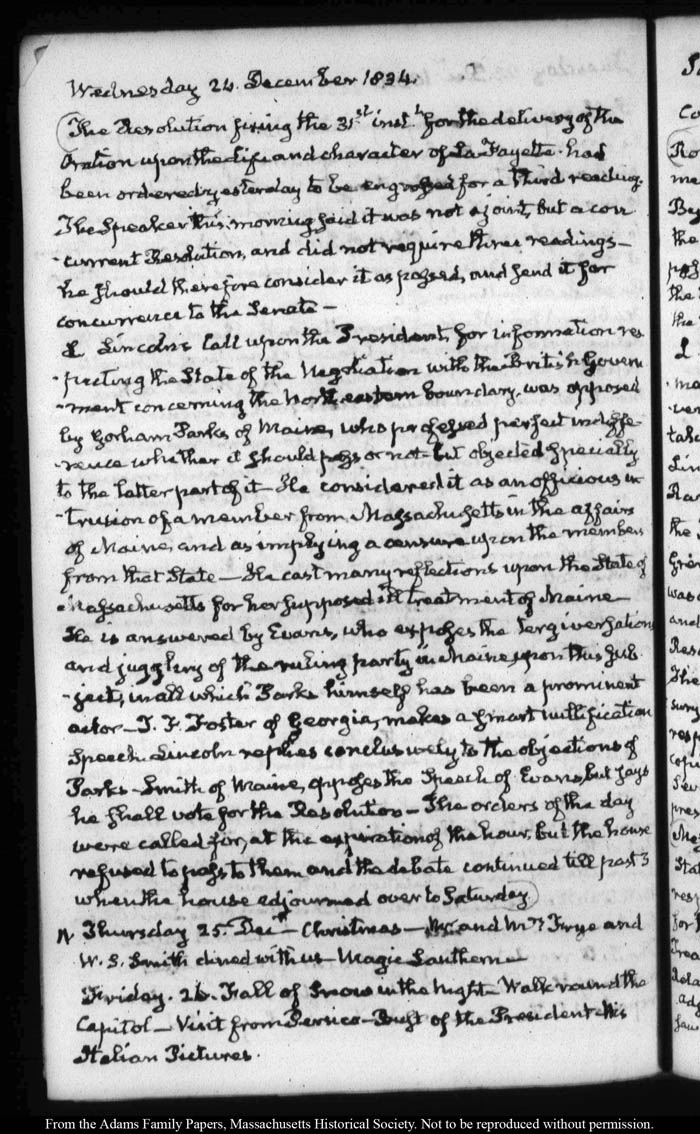 Wednesday 24. December 1834.
The Resolution fixing the 31st inst.t for the delivery of the
Oration upon the Life and character of La Fayette had
been ordered yesterday to be engrossed for a third reading.
The Speaker this morning said it was not a joint, but a con
-current Resolution, and did not require three readings—
he should therefore consider it as passed, and send it for
concurrence to the Senate—
L Lincoln's Call upon the President, for information res
-pecting the State of the Negotiation with the British Govern
-ment concerning the North eastern boundary, was opposed
by Gorham Parks of Maine, who professed perfect indiffe
-rence whether it should pass or not—but objected specially
to the latter part of it—He considered it as an officious in
-trusion of a member from Massachusetts in the affairs
of Maine, and as implying a censure upon the members
from that State—He cast many reflections upon the State of
Massachusetts for her supposed ill treatment of Maine—
He is answered by Evans, who exposes the tergiversations
and jugglery of the ruling party in Maine upon this sub
-ject, in all which Parks himself has been a prominent
actor—T. F. Foster of Georgia, makes a smart nullification
Speech. Lincoln replies conclusively to the objections of
Parks—Smith of Maine, opposes the Speech of Evans, but says
he shall vote for the Resolution—The orders of the day
were called for, at the expiration of the hour, but the house
refused to pass to them and the debate continued till past 3
when the house adjourned over to Saturday
Thursday 25. Dec.r—Christmas—Mr and Mrs Frye and
W. S. Smith dined with us—Magic Lanthern—
Friday. 26. Fall of Snow in the Night—Walk round the
Capitol—Visit from Persico—Bust of the President—His
Italian Pictures.
From the Adams Family Papers, Massachusetts Historical Society. Not to be reproduced without permission.